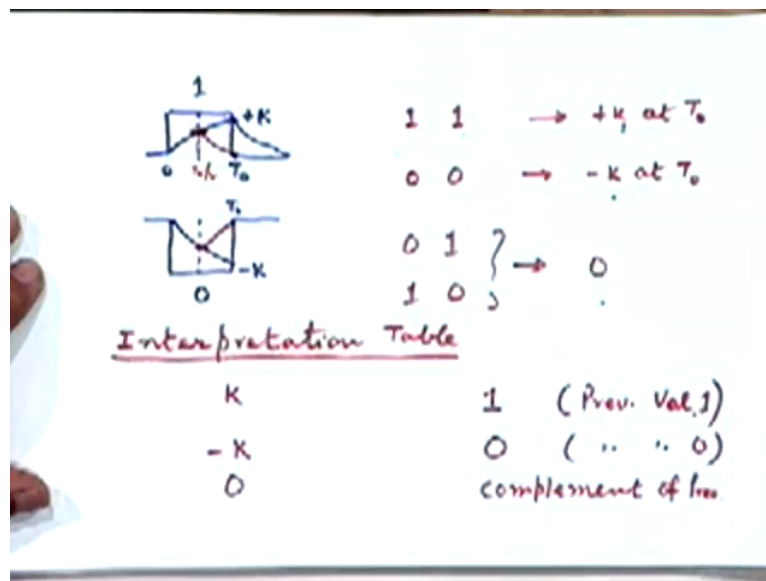 1
+K
0 T₀/2 T₀
1 1 → +K, at T₀
0 0 → - K at T₀
T₀
-K
0
0 1
1 0 } → 0
Interpretation Table
K 1 (Prev. Val. 1)
- K 0 ( " " 0)
0 complement of Prev.